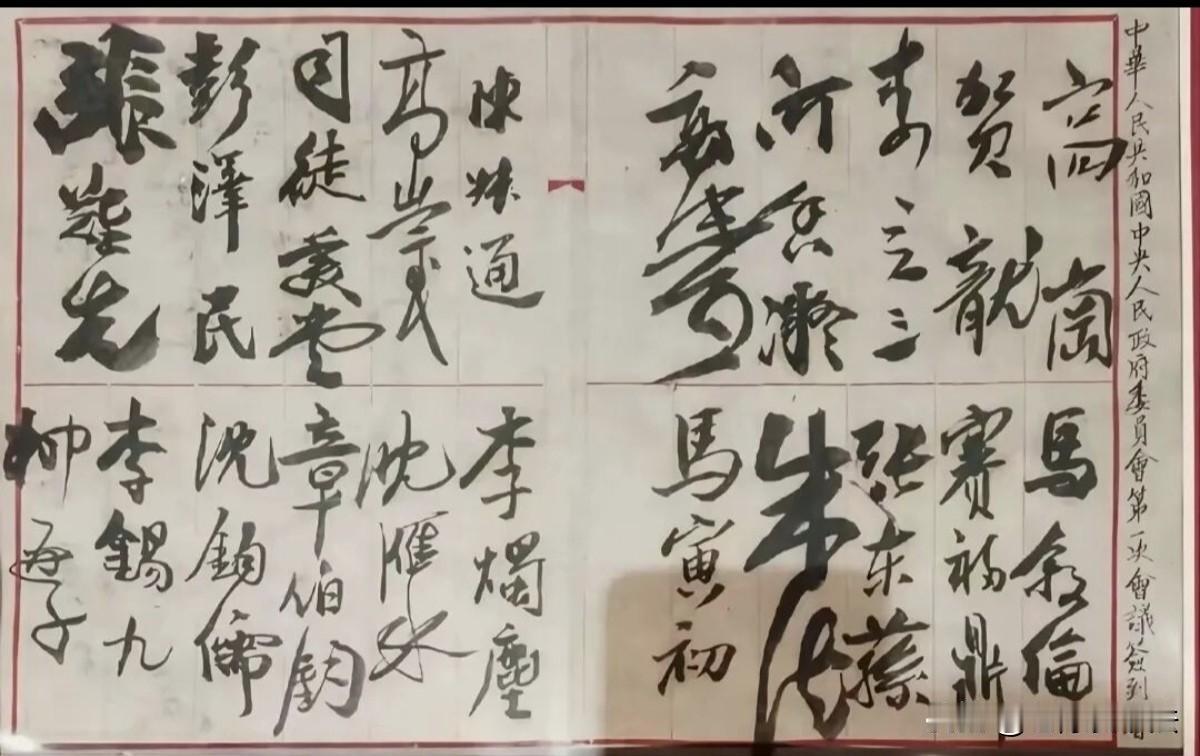 中華人民共和國中央人民政府委員會第一次會議簽到
高崗
贺龍
李立三
何香凝
馬叙倫
賽福鼎
张东蓀
朱德
馬寅初
陳叔通
高崇民
司徒美堂
彭澤民
張難先
李燭塵
沈雁冰
章伯鈞
沈鈞儒
李錫九
柳亞子